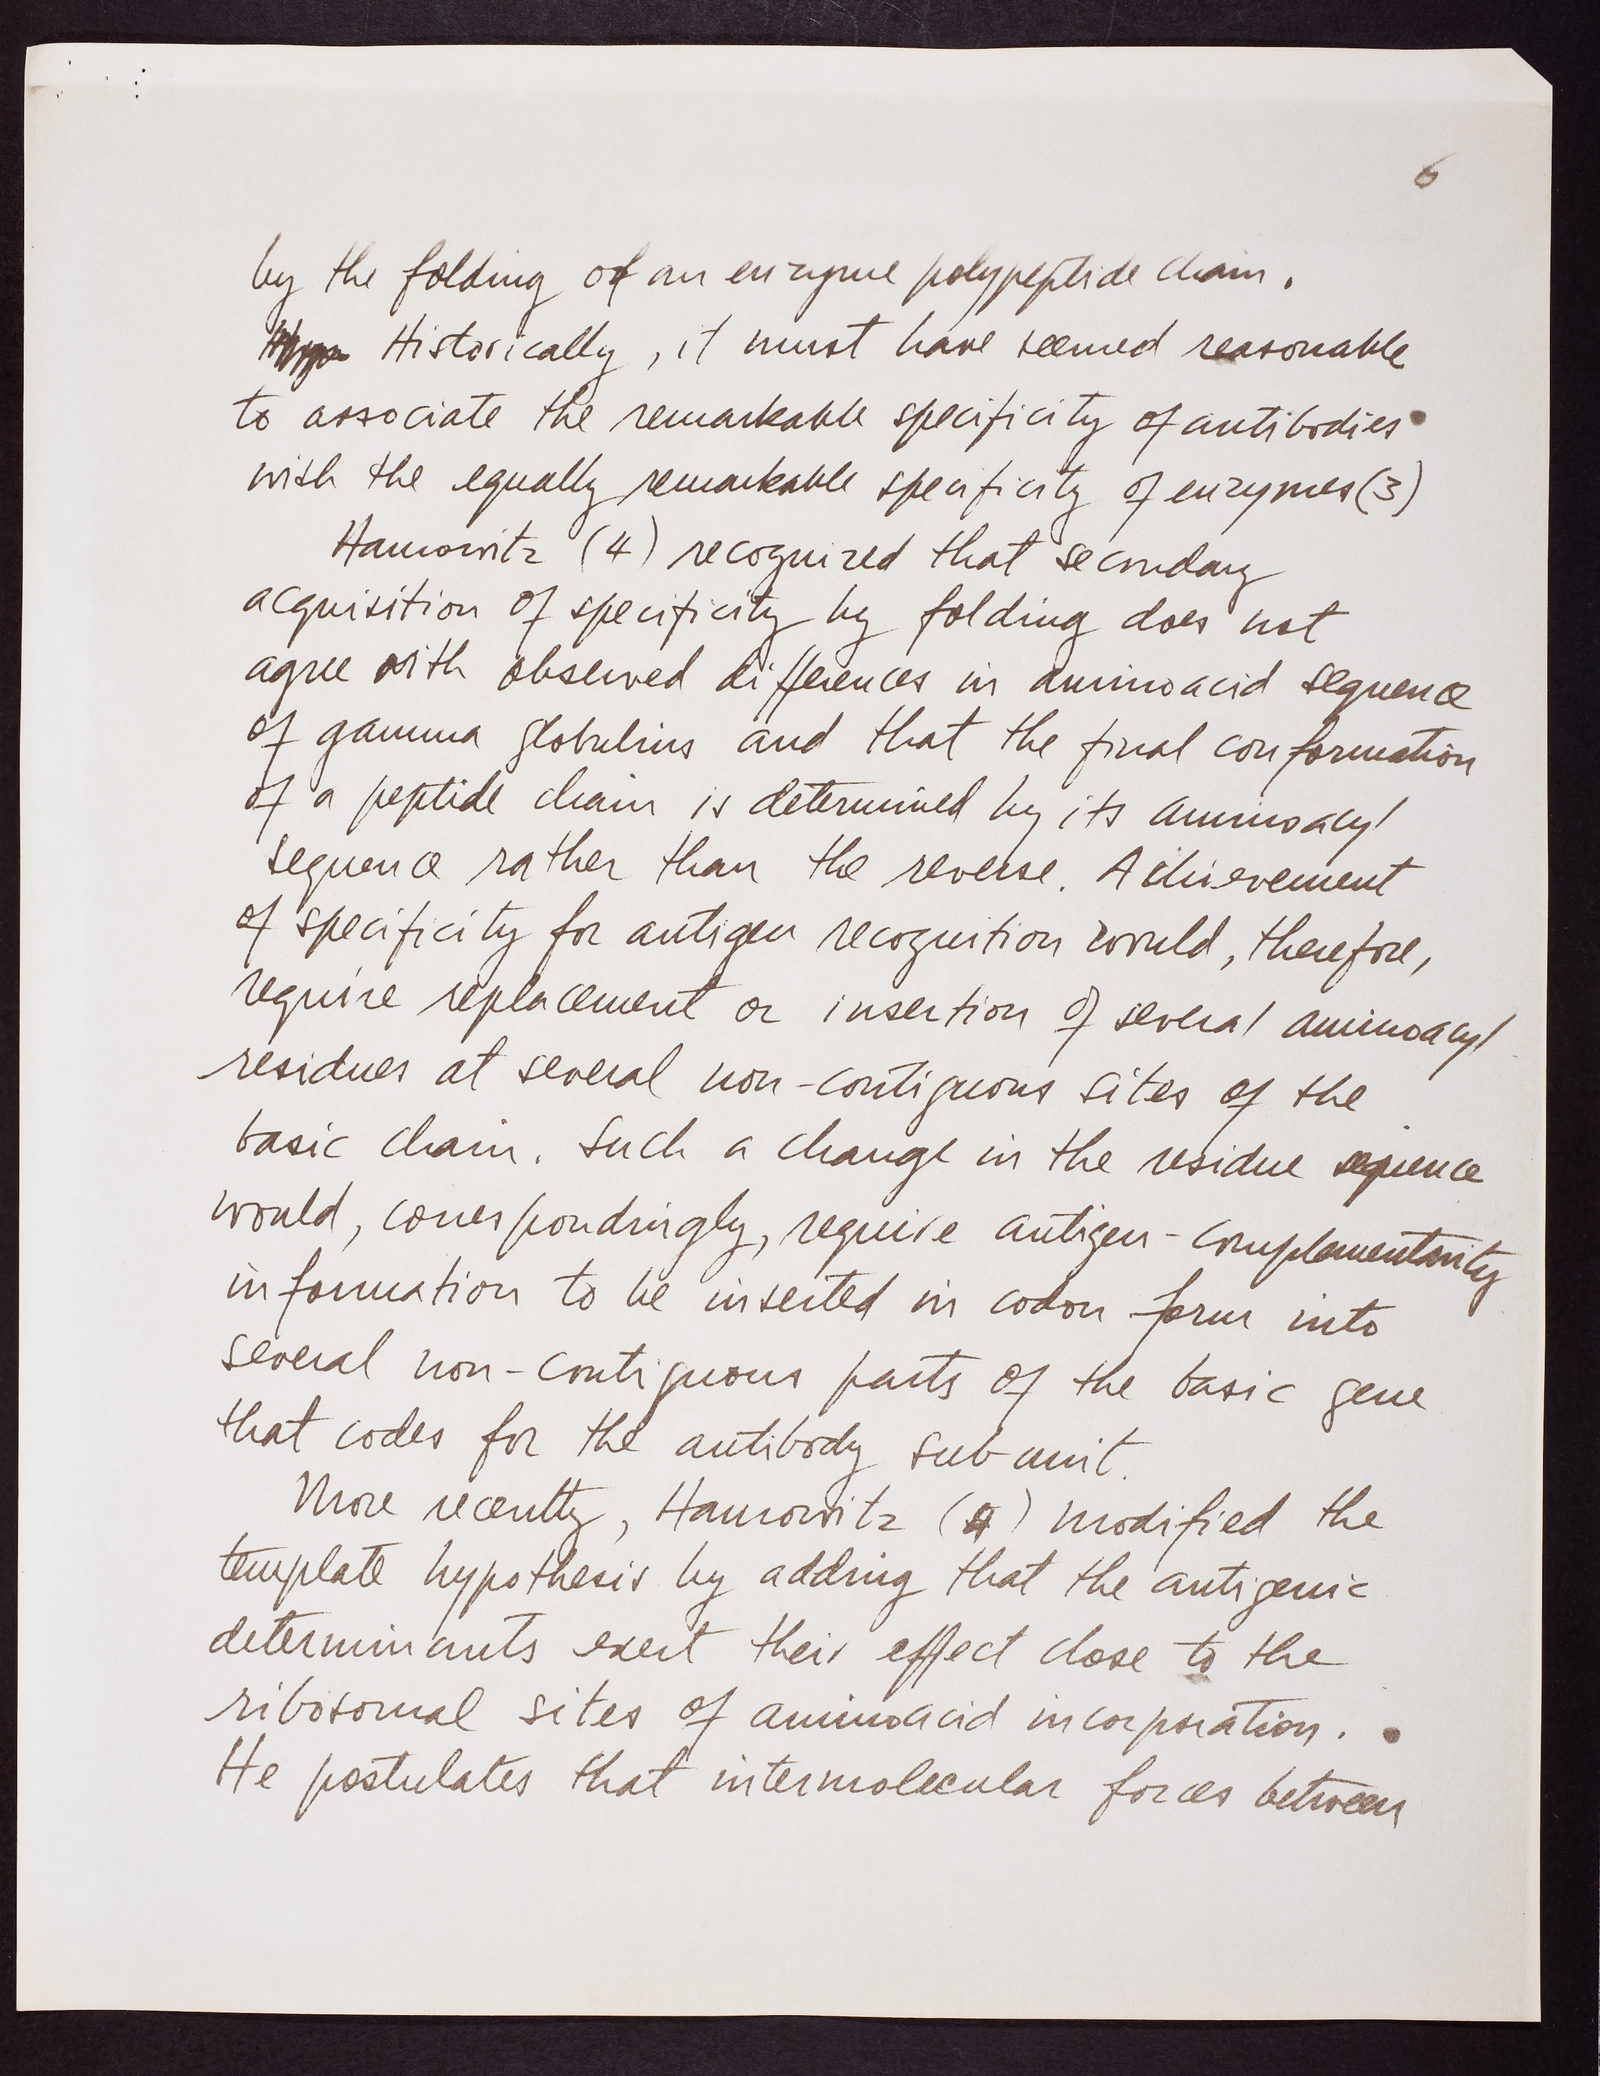 6
by the folding of an enzyme polypeptide chain.
Historically, it must have seemed reasonable
to associate the remarkable specificity of antibodies
with the equally remarkable specificity of enzymes(3)
Haurowitz (4) recognized that secondary
acquisition of specificity by folding does not
agree with observed differences in aminoacid sequence
of gamma globulins and that the final conformation
of a peptide chain is determined by its aminoacyl
sequence rather than the reverse. Achievement
of specificity for antigen recognition would, therefore,
require replacement or insertion of several aminoacyl
residues at several non-contiguous sites of the
basic chain. Such a change in the residue sequence
would, correspondingly, require antigen-complementarity
information to be inserted in codon form into
several non-contiguous parts of the basic gene
that codes for the antibody subunit.
More recently, Haurowitz (4) modified the
template hypothesis by adding that the antigenic
determinants exert their effect close to the
ribosomal sites of aminoacid incorporation.
He postulates that intermolecular forces between